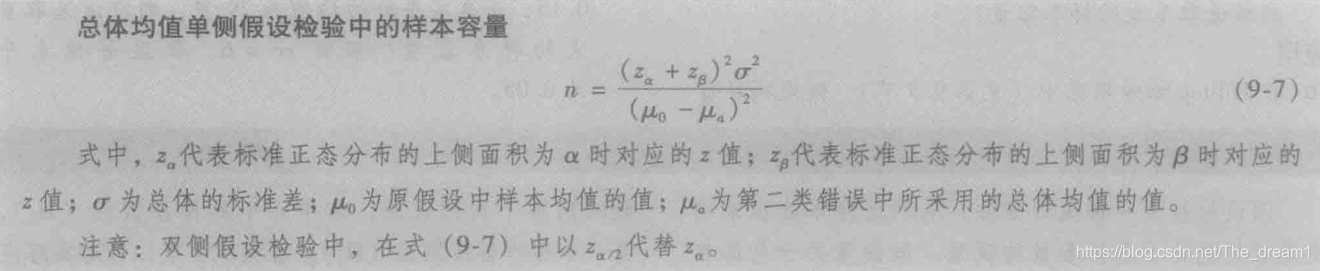 总体均值单侧假设检验中的样本容量
n = (zα + zβ)²σ² / (μ₀ − μa)² (9-7)
式中，zα代表标准正态分布的上侧面积为 α 时对应的 z 值；zβ代表标准正态分布的上侧面积为 β 时对应的
z 值；σ 为总体的标准差；μ₀为原假设中样本均值的值；μa为第二类错误中所采用的总体均值的值。
注意：双侧假设检验中，在式（9-7）中以 zα/2代替 zα。
https://blog.csdn.net/The_dream1